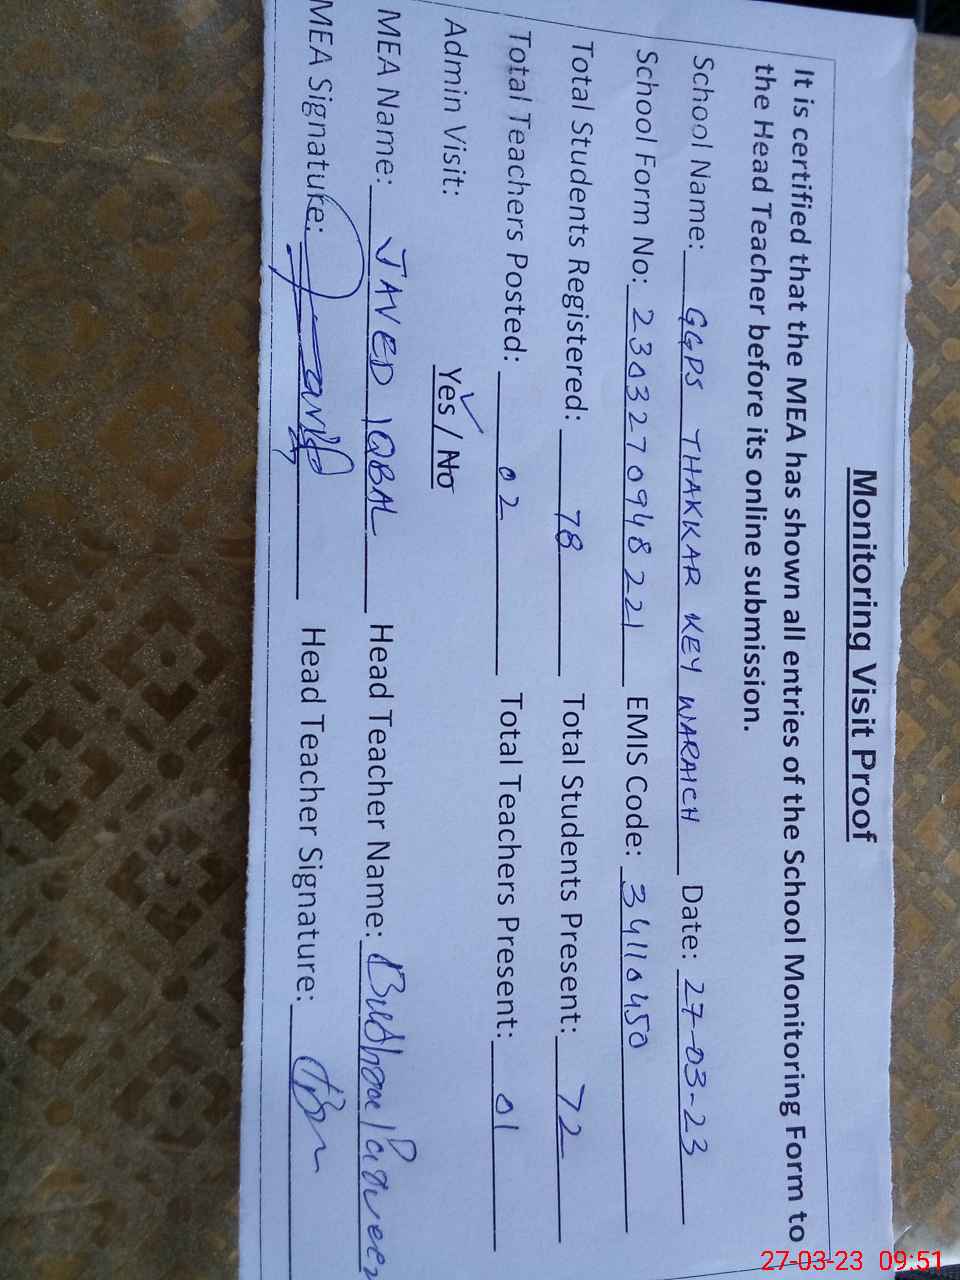 Monitoring Visit Proof
It is certified that the MEA has shown all entries of the School Monitoring Form to
the Head Teacher before its online submission.
School Name: GGPS THAKKAR KEY WARAICH Date: 27-03-23
School Form No: 2303270948221 EMIS Code: 34110450
Total Students Registered: 78 Total Students Present: 72
Total Teachers Posted: 02 Total Teachers Present: 01
Admin Visit: Yes / No
MEA Name: JAVED IQBAL Head Teacher Name: Bushra Parveen
MEA Signature: Head Teacher Signature:
27-03-23 09:51